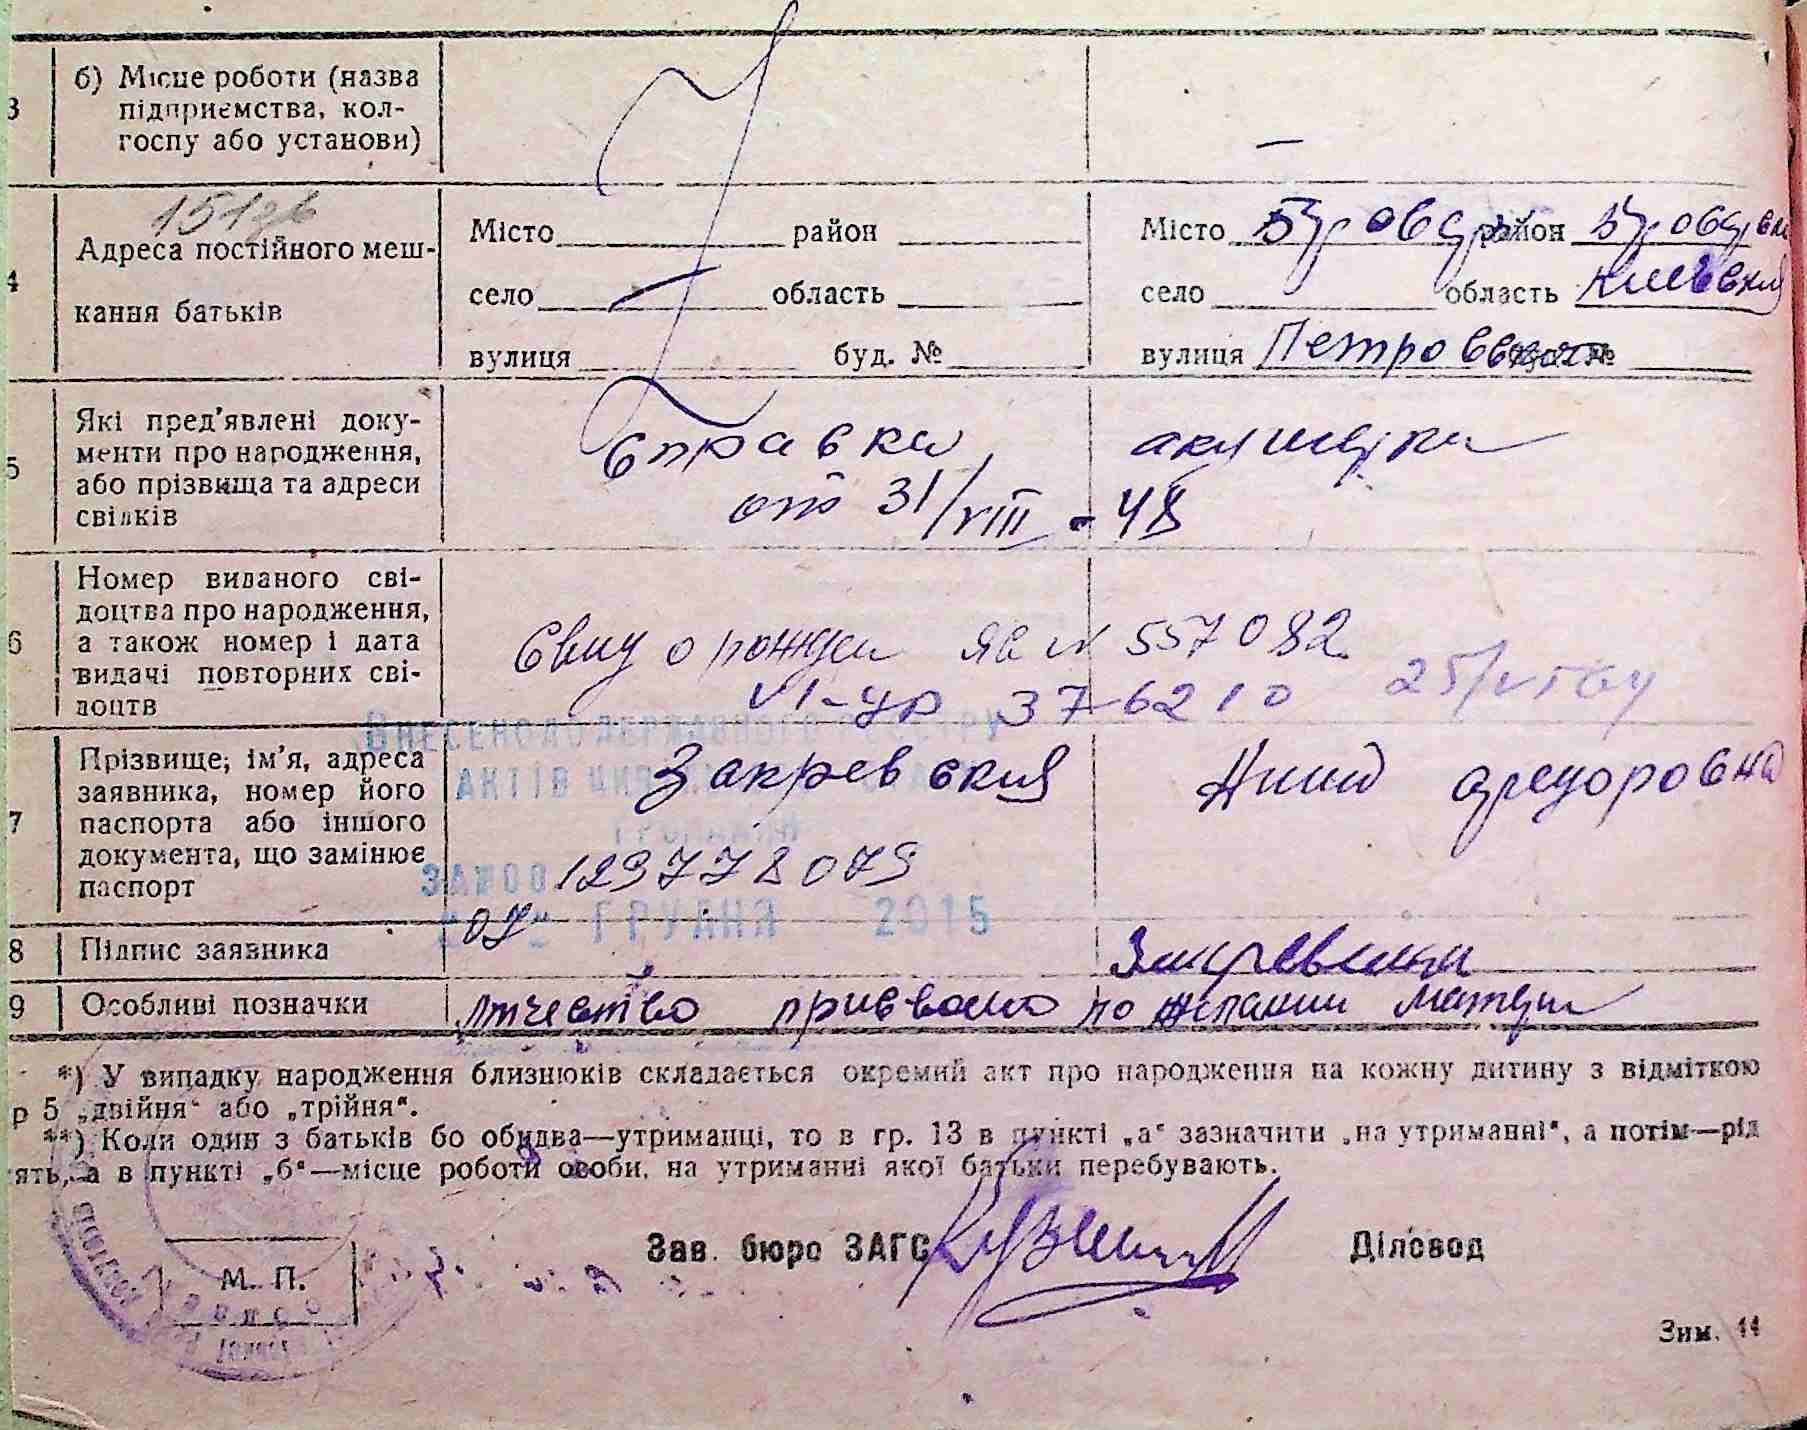 3 б) Місце роботи (назва
підприємства, кол-
госпу або установи) —
4 Адреса постійного меш-
кання батьків
Місто район
село — область
вулиця буд. №
Місто район
село область Киевская
вулиця №
5 Які пред'явлені доку-
менти про народження,
або прізвища та адреси
свідків
справка акушерки
от 31/VIII - 48
6 Номер виданого сві-
доцтва про народження,
а також номер і дата
видачі повторних сві-
доцтв
Свид о рожден ЯБ № 557082
VI-УР 376210
7 Прізвище, ім'я, адреса
заявника, номер його
паспорта або іншого
документа, що замінює
паспорт
Закревская Анна Федоровна
ВНЕСЕНО ДО ДЕРЖАВНОГО РЕЄСТРУ
АКТІВ
ГРОМАДЯН
129778079
ГРУДНЯ 2015
8 Підпис заявника Закревская
9 Особливі позначки отчество присвоено по желании матери
*) У випадку народження близнюків складається окремий акт про народження на кожну дитину з відміткою
р 5 „двійня“ або „трійня“.
**) Коли один з батьків бо обидва—утриманці, то в гр. 13 в пункті „а“ зазначити „на утриманні“, а потім—рід
ять, а в пункті „б“—місце роботи особи, на утриманні якої батьки перебувають.
Зав. бюро ЗАГС Діловод
М. П.
Зим. 44